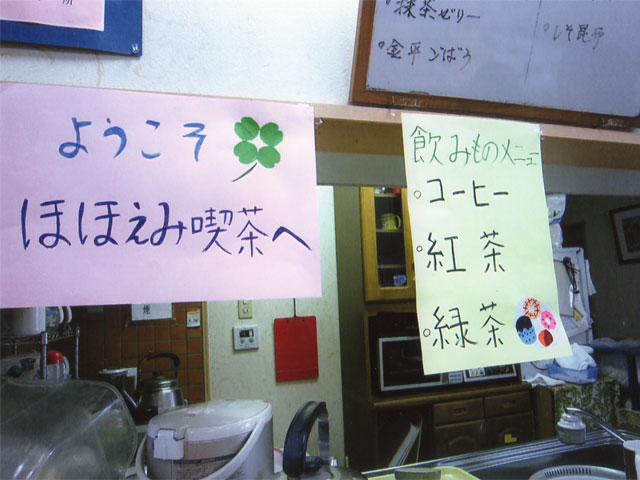 抹茶ゼリー
・金平ごぼう
・しそ昆布
ようこそ
ほほえみ喫茶へ
飲みものメニュー
・コーヒー
・紅茶
・緑茶